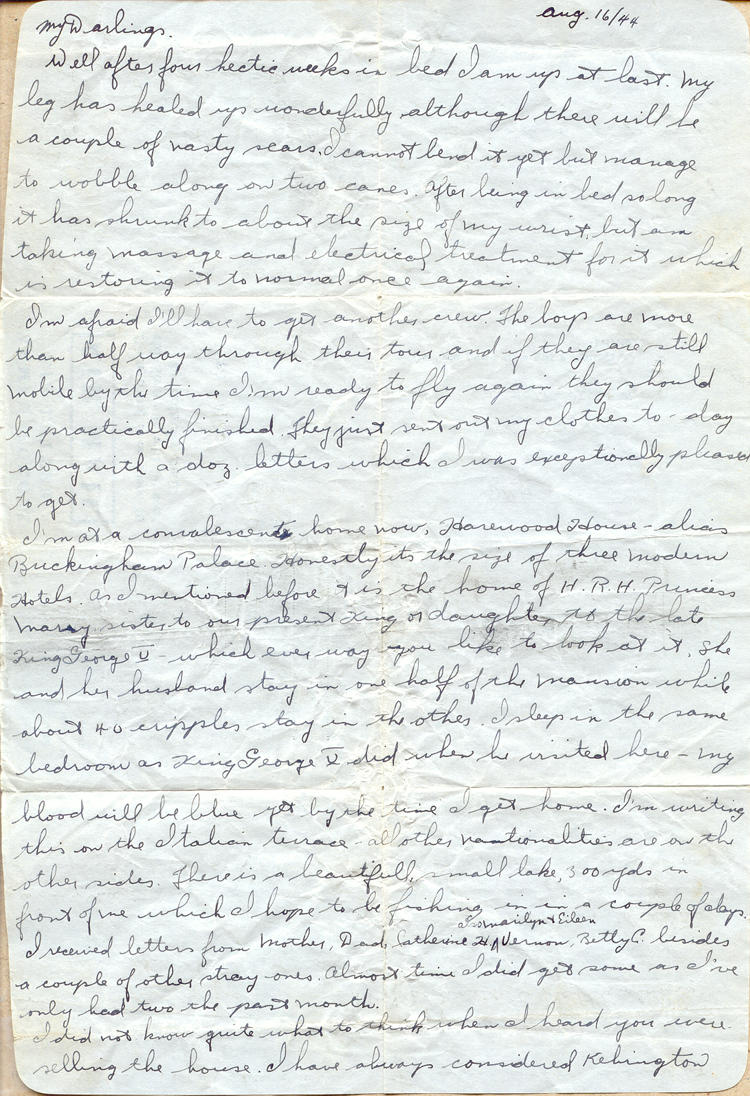 Aug. 16/44
My Darlings.
Well after four hectic weeks in bed I am up at last. My
leg has healed up wonderfully although there will be
a couple of nasty scars. I cannot bend it yet but manage
to wobble along on two canes. After being in bed so long
it has shrunk to about the size of my wrist, but am
taking massage and electrical treatment for it which
is restoring it to normal once again.
I'm afraid I'll have to get another crew. The boys are more
than half way through their tour and if they are still
mobile by the time I'm ready to fly again they should
be practically finished. They just sent out my clothes to-day
along with a doz. letters which I was exceptionally pleased
to get.
I'm at a convalescent home now, Harewood House - alias
Buckingham Palace. Honestly its the size of three modern
Hotels. As I mentioned before it is the home of H.R.H. Princess
Mary sister to our present King or daughter to the late
King George V - which ever way you like to look at it. She
and her husband stay in one half of the mansion while
about 40 cripples stay in the other. I sleep in the same
bedroom as King George V did when he visited here - my
blood will be blue yet by the time I get home. I'm writing
this on the Italian terrace - all other nantionalities are on the
other sides. There is a beautiful, small lake, 300 yds in
front of me which I hope to be fishing in in a couple of days.
Marilyn & Eileen
I received letters from Mother, Dad, Catherine H, Vernon, Betty C. besides
a couple of other stray ones. Almost time I did get some as I've
only had two the past month.
I did not know quite what to think when I heard you were
selling the house. I have always considered Kebington